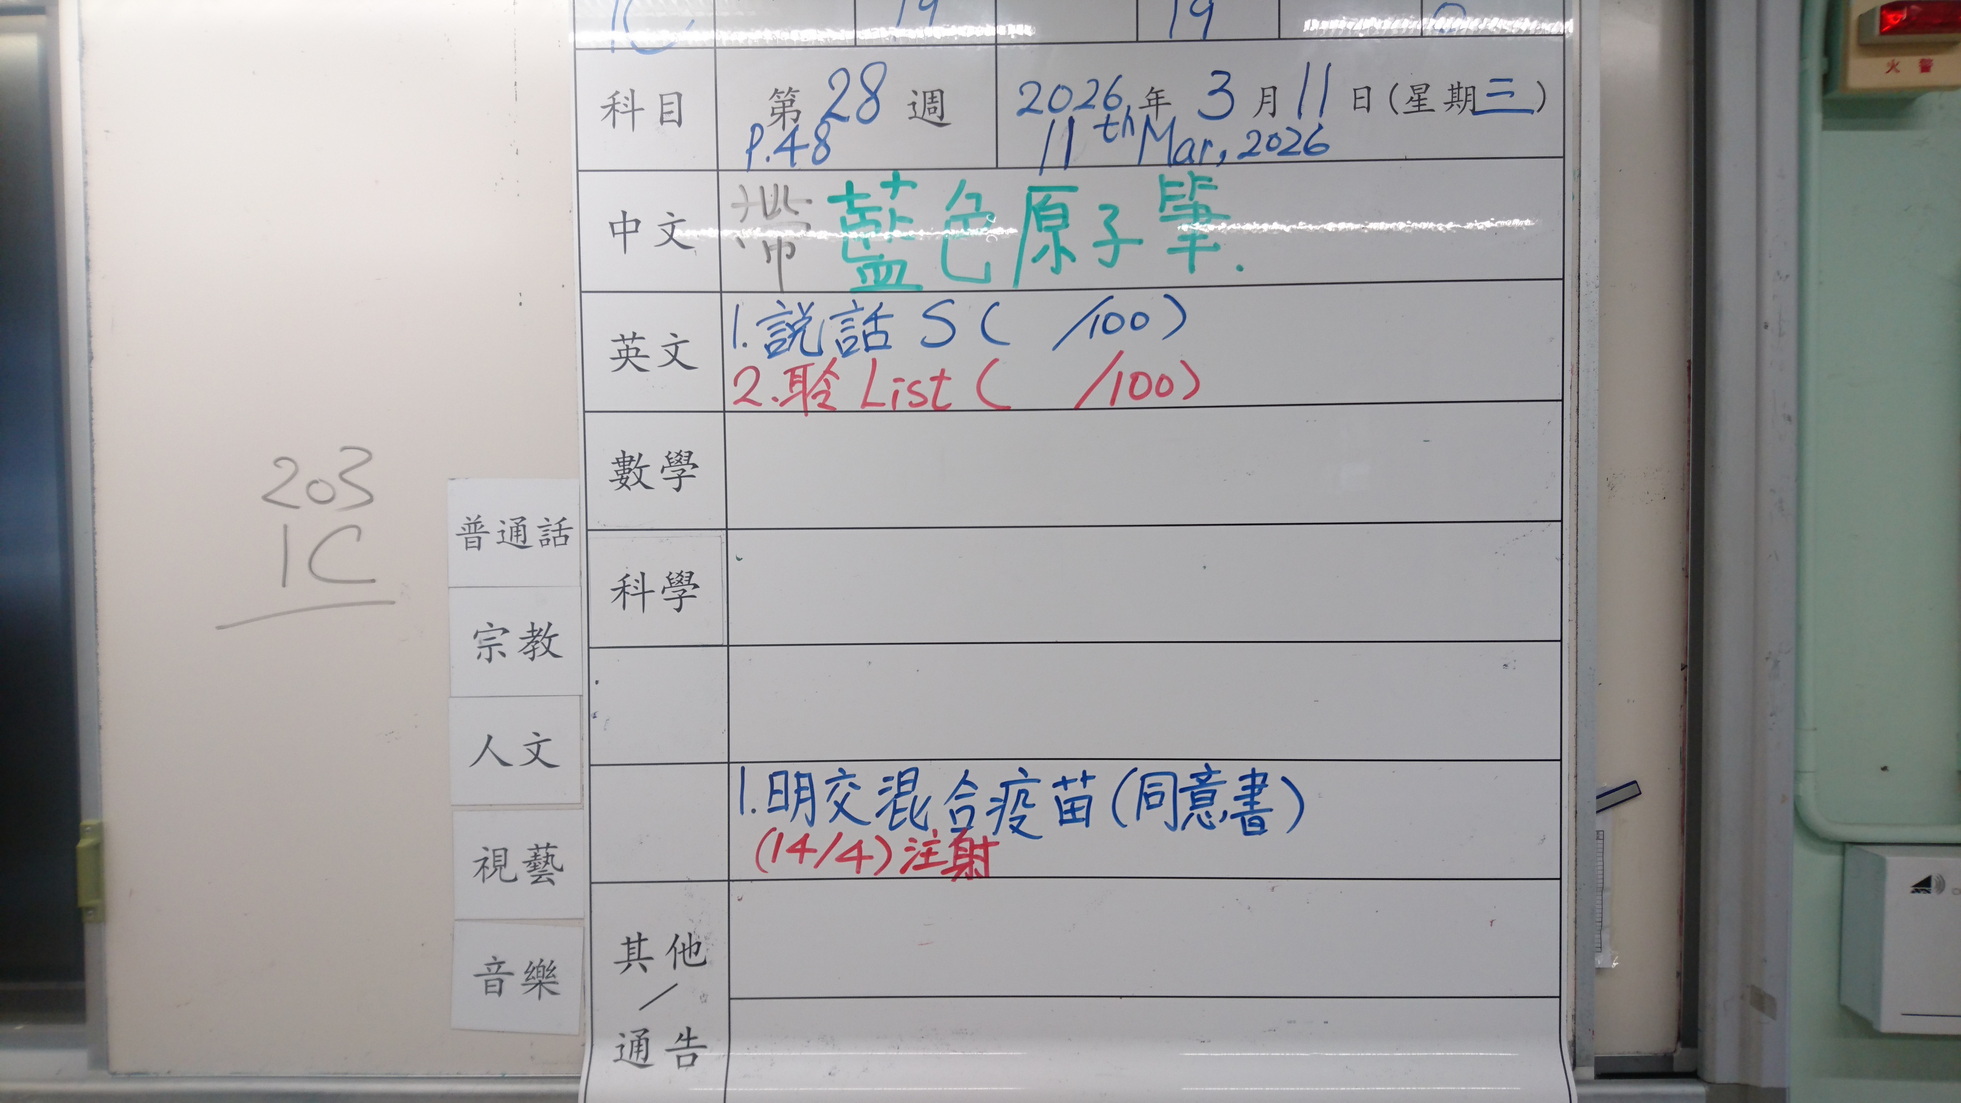 1C 19 19 0
科目 第28週 2026年3月11日(星期三)
P.48 11th Mar, 2026
中文 帶藍色原子筆.
英文 1.説話 S( /100)
2.聆 List ( /100)
數學
科學
1.明交混合疫苗(同意書)
(14/4)注射
其他
/
通告
203
1C
普通話
宗教
人文
視藝
音樂
火警